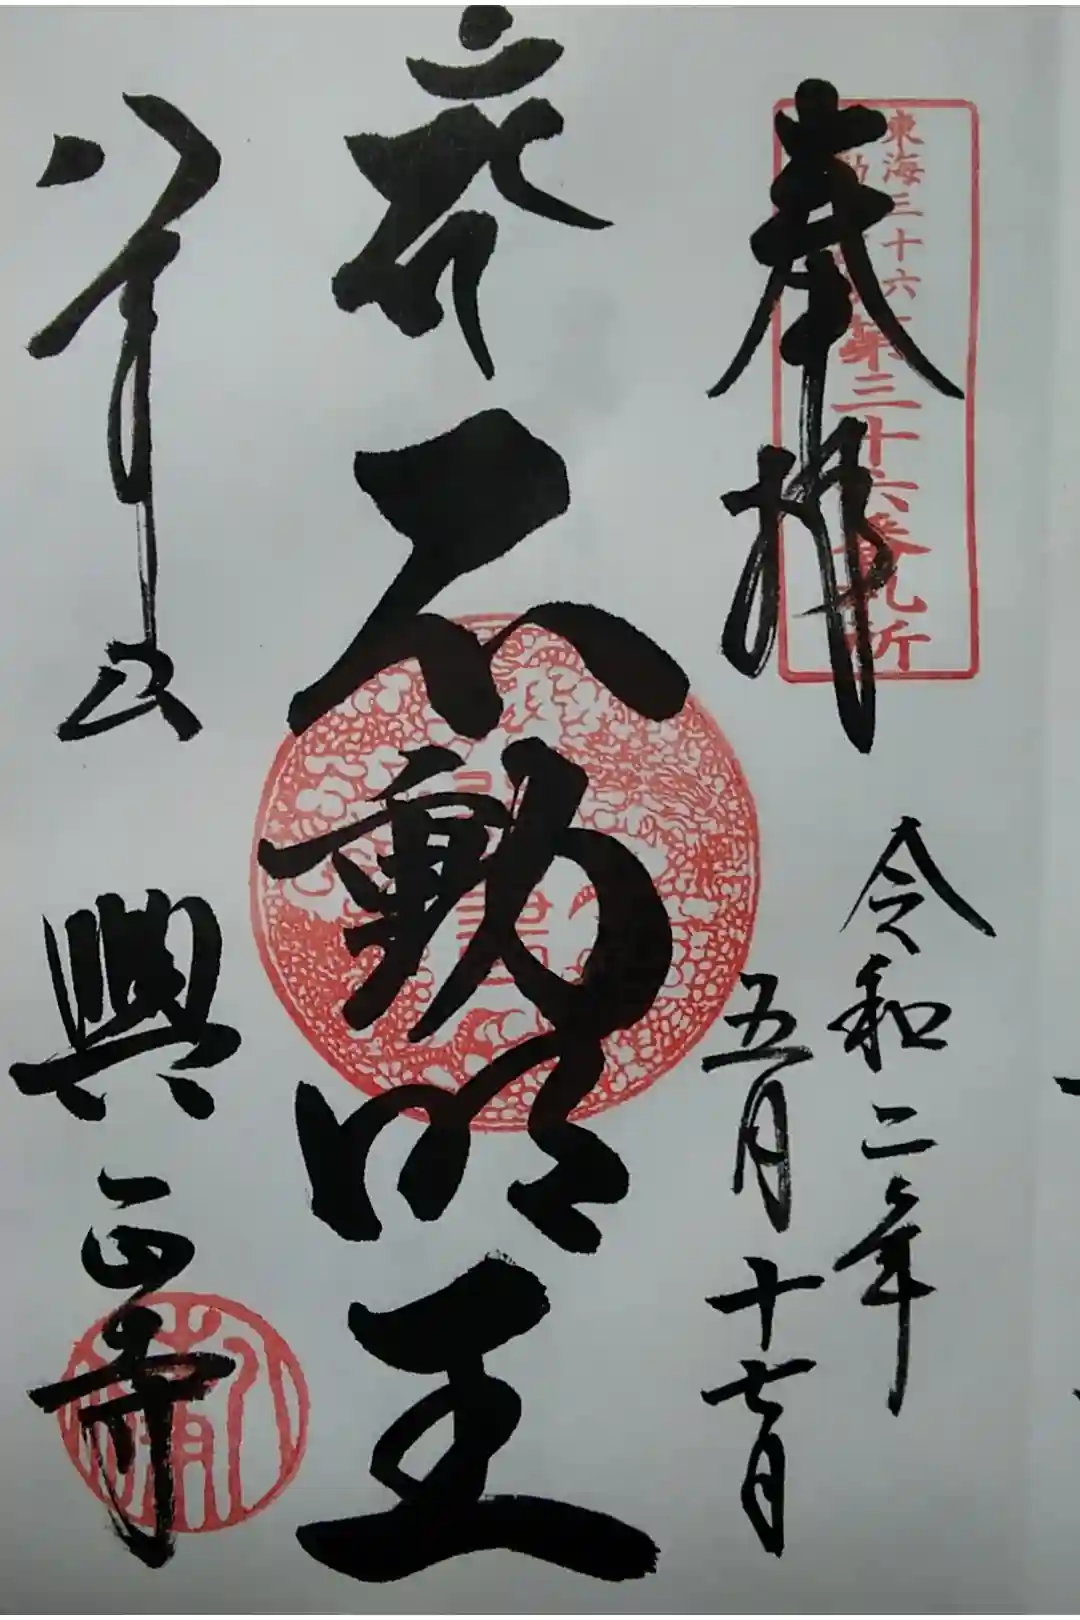 奉拝
東海三十六
第三十六番札所
令和二年
五月十七日
不動明王
八事山
興正寺